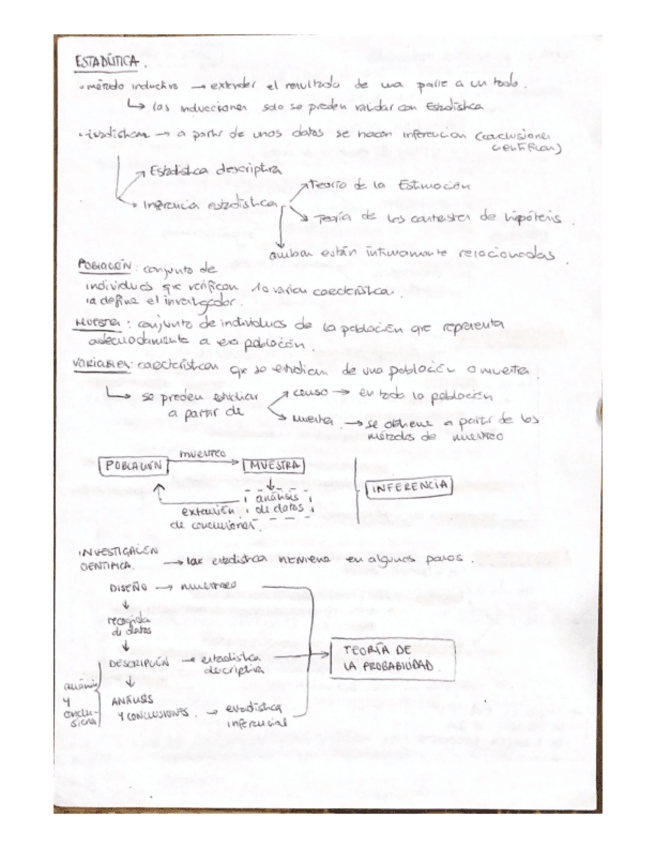 ESTADÍSTICA.
· método inductivo → extender el resultado de una parte a un todo.
↳ las inducciones solo se pueden validar con Estadística.
· Estadística → a partir de unos datos se hacen inferencian (conclusiones
científicas)
Estadística descriptiva
Inferencia estadística
Teoría de la Estimación
Teoría de los contrastes de hipótesis.
ambas están íntimamente relacionadas.
POBLACIÓN: conjunto de
individuos que verifican característica.
la define el investigador.
MUESTRA: conjunto de individuos de la población que representa
adecuadamente a esa población.
VARIABLES: características que se estudian de una población o muestra.
↳ se pueden estudiar
a partir de
censo → en toda la población
muestra. → se obtiene a partir de los
métodos de muestreo
POBLACIÓN muestreo → MUESTRA
análisis
de datos
extensión
de conclusiones.
INFERENCIA
INVESTIGACIÓN
CIENTÍFICA. → la estadística interviene en algunos pasos.
DISEÑO → muestreo
↓
recogida
de datos
↓
DESCRIPCIÓN → estadística
descriptiva
↓
ANÁLISIS
Y CONCLUSIONES. → estadística
inferencial
análisis
y
conclu-
siones
TEORÍA DE
LA PROBABILIDAD.